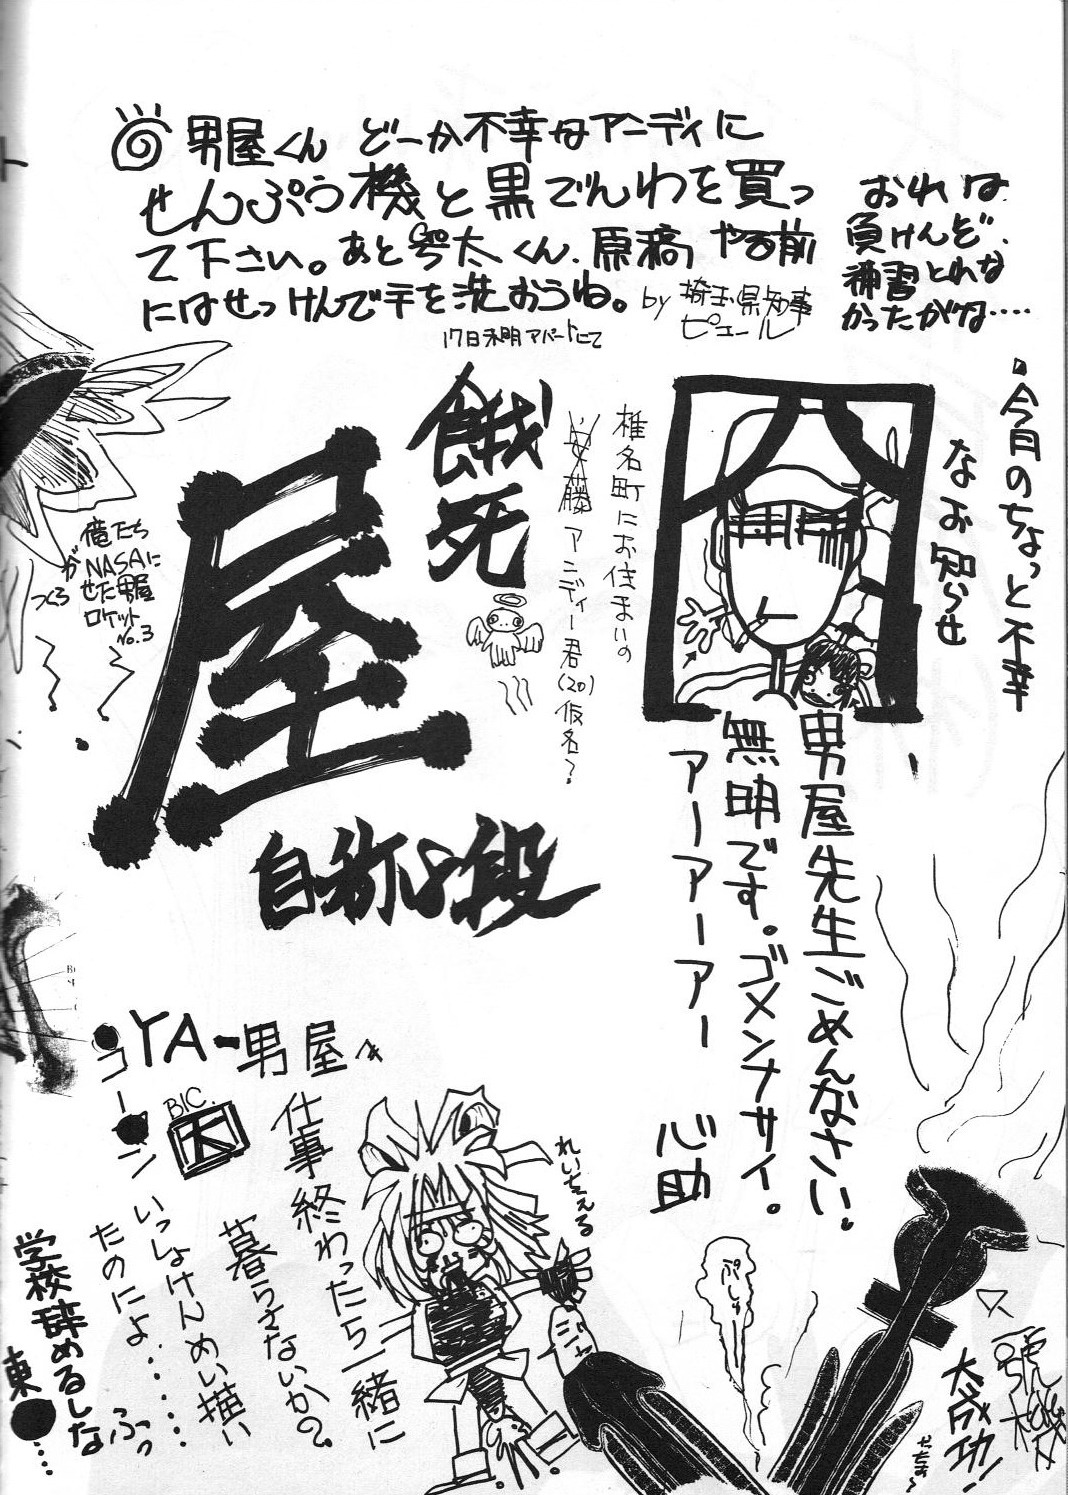 男屋くん どーか不幸なアニディに
せんぷう機と黒でんわを買っ
て下さい。あと号太くん、原稿やる前
にはせっけんで手を洗おうね。
by 埼玉県知事
ピエール
17日未明アパートにて
おれは
負けんぞ、
補習とれな
かったがな‥‥
・今月のちょっと不幸
なお知らせ
餓死
椎名町にお住まいの
安藤アニディー君(20)仮名?
屋
自称心段
俺たち
がNASAに
つくらせた男屋
ロケット
No.3
男屋先生ごめんなさい。
無明です。ゴメンナサイ。
アーアアーアー
心助
YA-男屋へ
BIC.
仕事終わったら一緒に
暮らさないか?
いっしょけんめい描い
たのによ‥‥‥
ふっ
学校辞めるしな
東●…
れいちぇる
ぷしゅ
大成功!